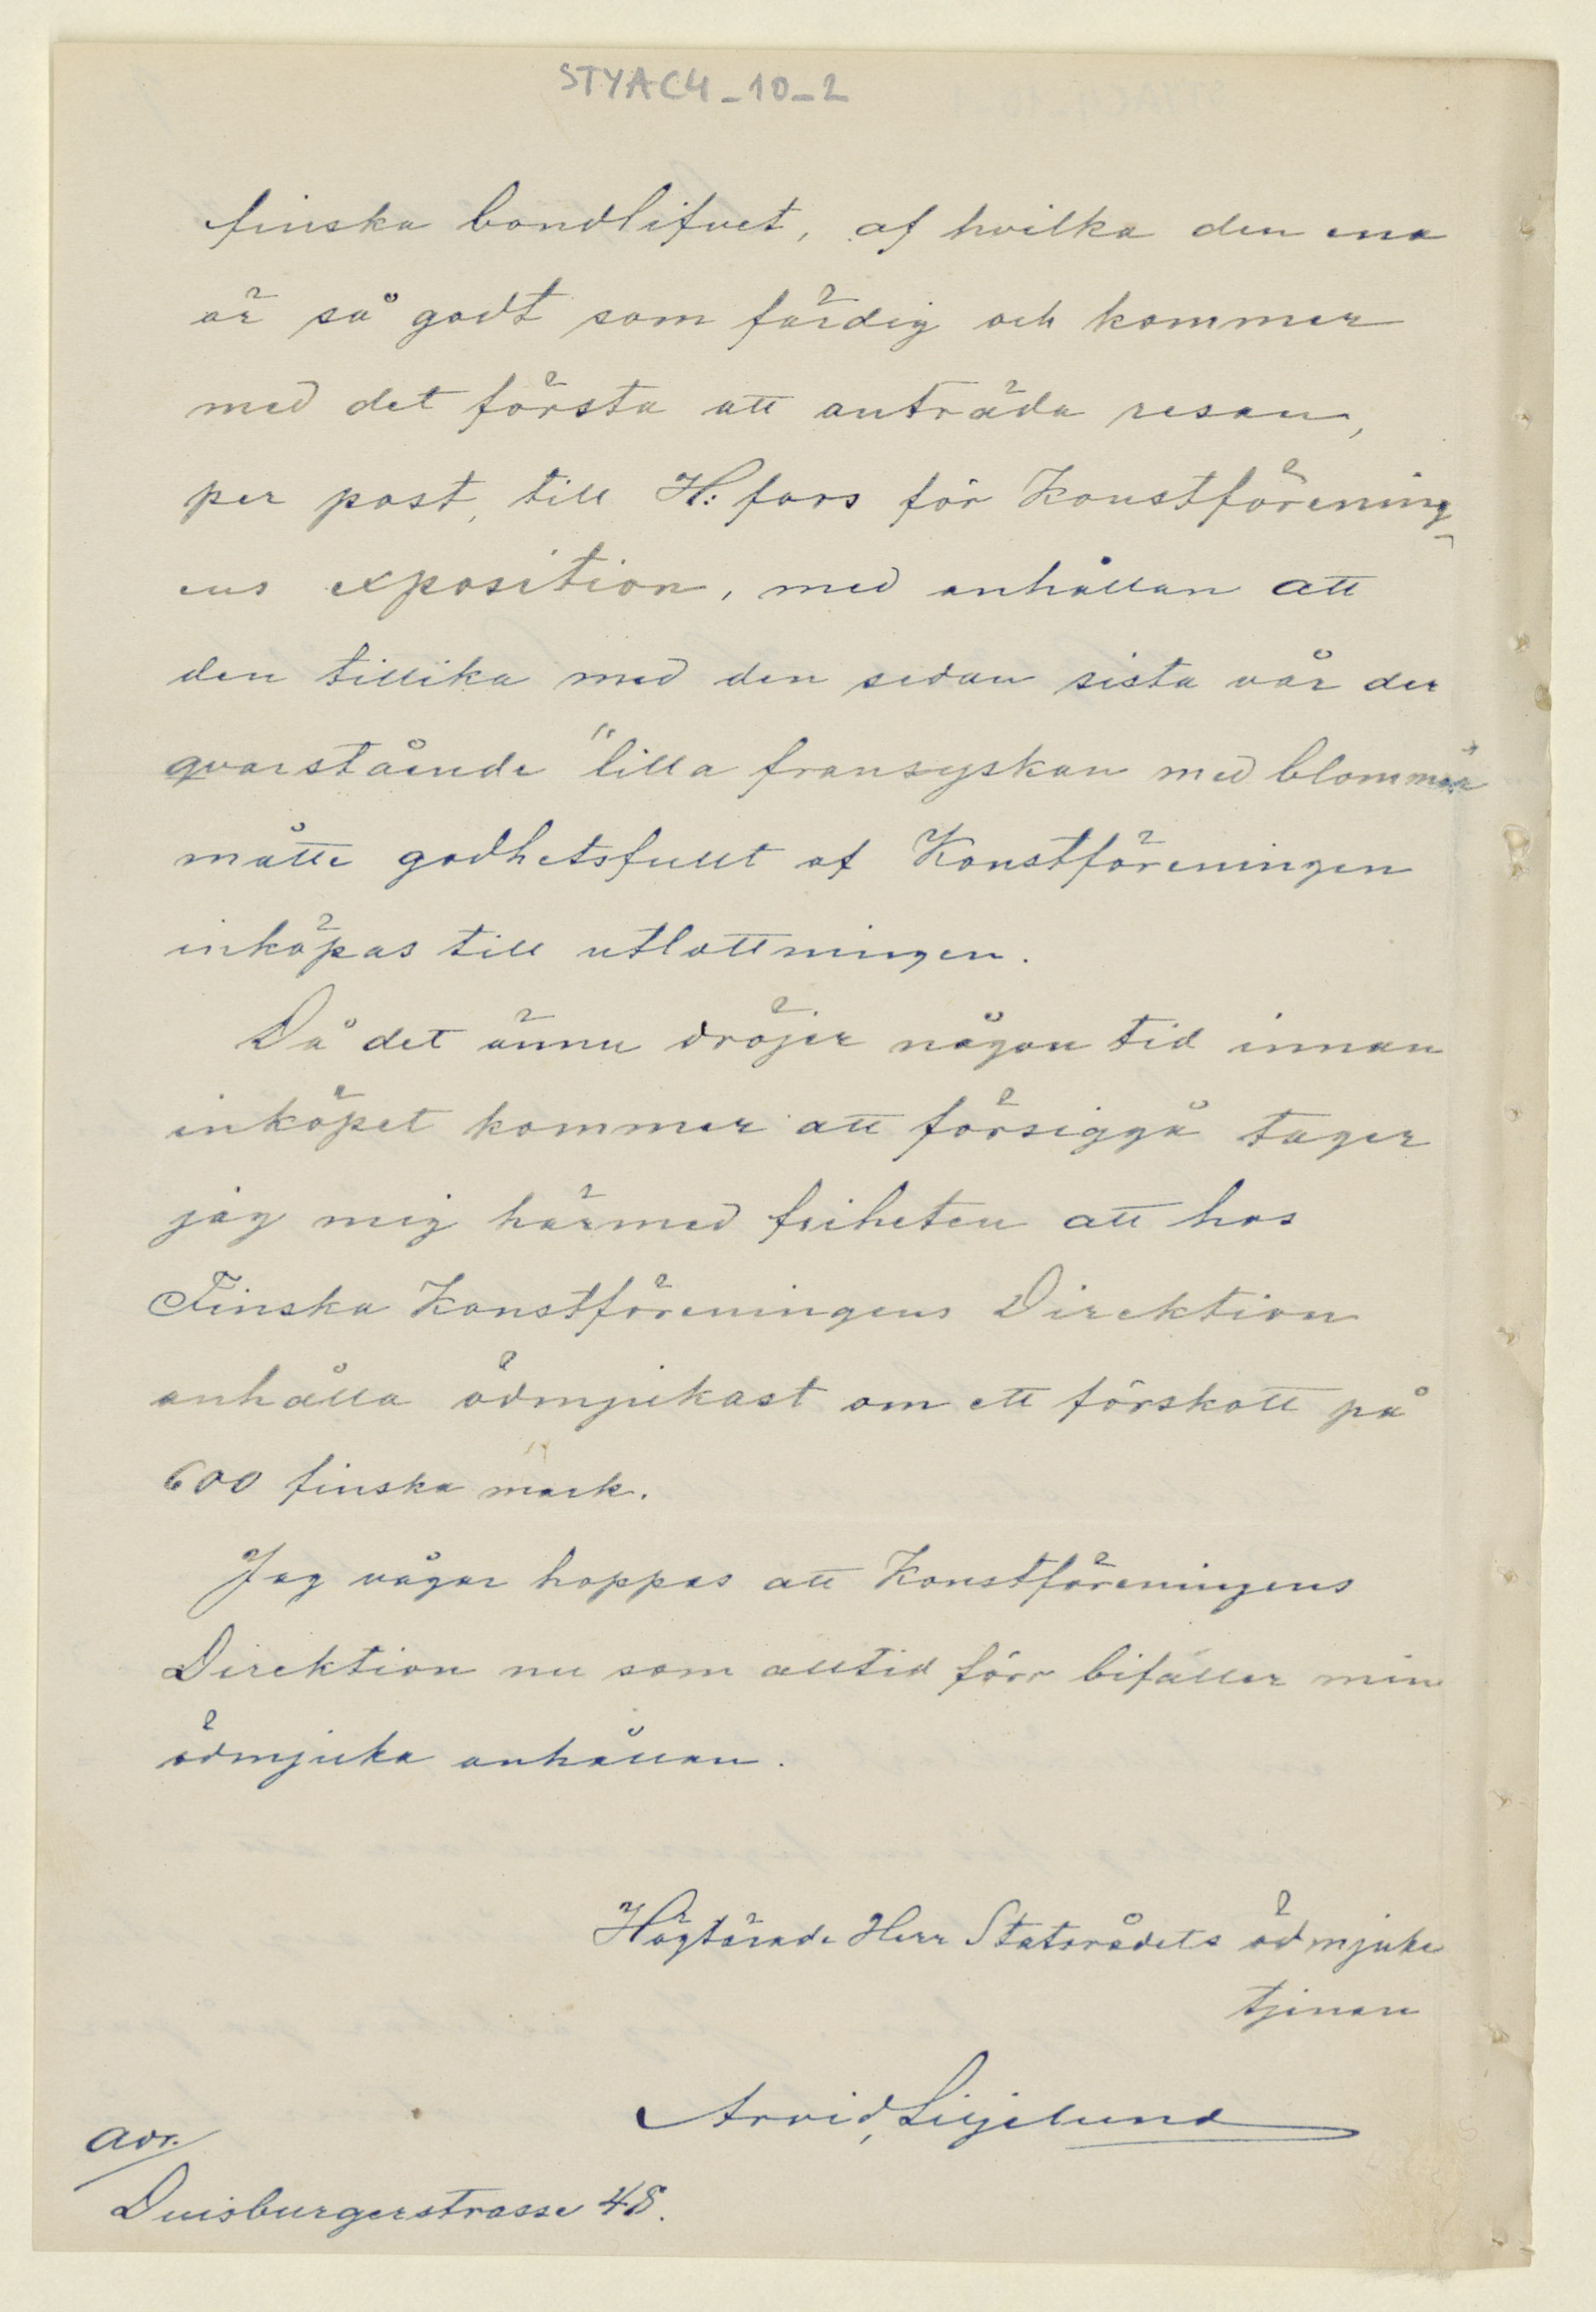 STYAC4_10_2
finska bondlifvet, af hvilka den ena
är så godt som färdig och kommer
med det första att anträda resan,
per post, till H:fors för Konstförening-
ens exposition, med anhållan att
den tillika med den sedan sista vår der
qvarstående "lilla fransyskan med blommor"
måtte godhetsfullt af Konstföreningen
inköpas till utlottningen.
Då det ännu dröjer någon tid innan
inköpet kommer att försiggå tager
jag mig härmed friheten att hos
Finska Konstföreningens Direktion
anhålla ödmjukast om ett förskott på
600 finska mark.
Jag vågar hoppas att Konstföreningens
Direktion nu som alltid förr bifaller min
ödmjuka anhållan.
Högtärade Herr Statsrådets ödmjuke
tjenare
Arvid Liljelund
Adr.
Duisburgerstrasse 48.